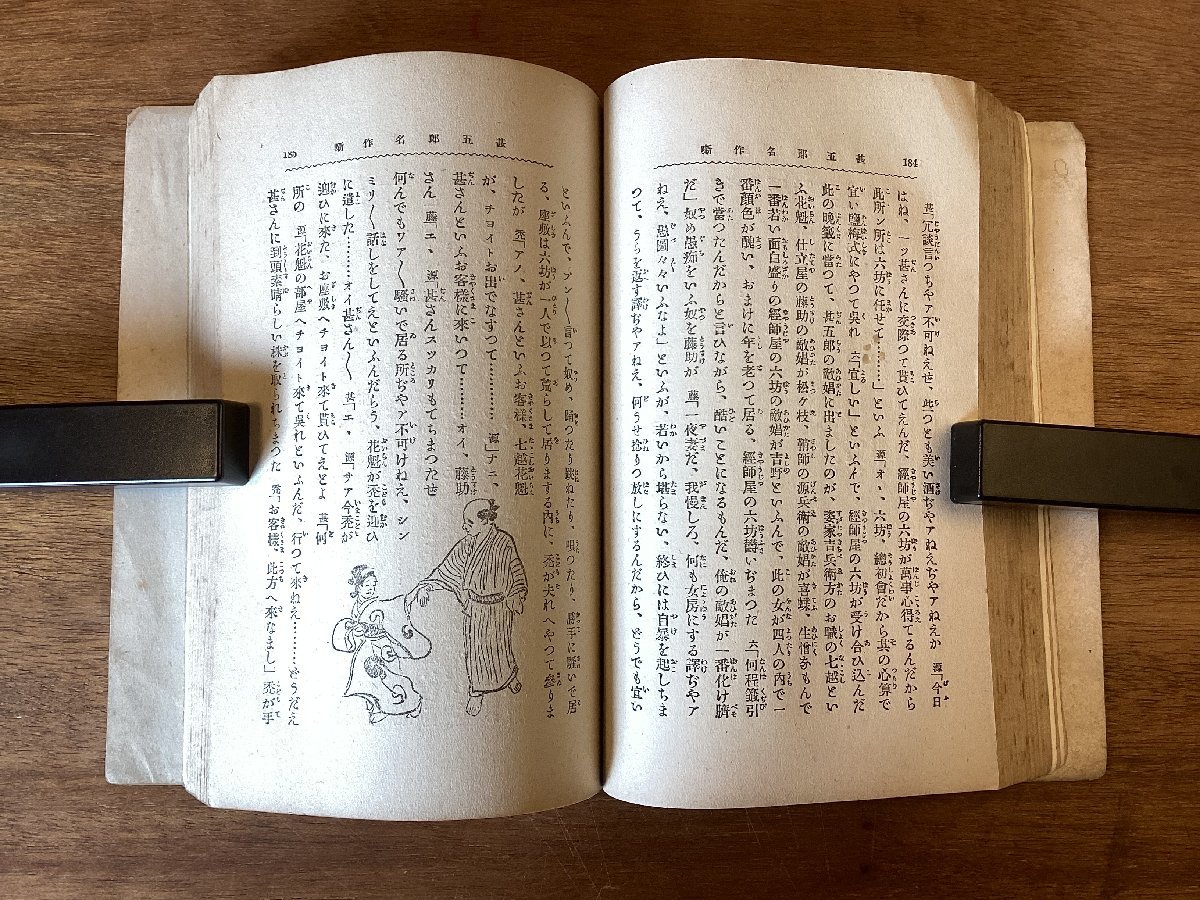 甚五郎名作噺
184
甚「冗談言つちやァ不可ねえせ、此つとも美い酒ぢやァねえぢやァねえか 源「今日
はね、一ッ甚さんに交際つて貰ひてえんだ、經師屋の六坊が萬事心得てるんだから
此所ン所は六坊に任せて………」といふ 源「オ丶、六坊、總初會だから其の心算で
宜い鹽梅式にやつて呉れ 六「宜しい」といふんで、經師屋の六坊が受け合ひ込んだ
此の晩籤に當つて、甚五郎の敵娼に出ましたのが、婆家吉兵衛方のお職の七越とい
ふ花魁、仕立屋の藤助の敵娼が松ヶ枝、鞘師の源兵衛の敵娼が喜蝶、生憎なもんで
一番若い面白盛りの經師屋の六坊の敵娼が吉野といふんで、此の女が四人の内で一
番顏色が醜い、おまけに年を老つて居る、經師屋の六坊欝いぢまつた 六「何程籤引
きで當つたんだからと言ひながら、酷いことになるもんだ、俺の敵娼が一番化け臍
だ」奴め愚痴をいふ奴を藤助が 藤「一夜妻だ、我慢しろ、何も女房にする譯ぢやァ
ねえ、愚圖々々いふなよ」といふが、若いから堪らない、終ひには自暴を起しちま
つて、うらを返す譯ぢやァねえ、何うせ捻りつ放しにするんだから、どうでも宜い
甚五郎名作噺
185
といふんで、プン〳〵言つて奴め、踊つたり跳ねたり、唄つたり、勝手に騒いで居
る、座敷は六坊が一人で以つて荒らして居ります内に、禿が夫れへやつて參りま
したが 禿「アノ、甚さんといふお客様、七越花魁
が、チヨイトお出でなすつて………… 源「ナニ、
甚さんといふお客様に來いつて………オイ、藤助
さん 藤「エ、 源「甚さんスツカリもてちまつたせ
何んでもワア〳〵騒いで居る所ぢやァ不可けねえ、シン
ミリ〳〵話しをしてえといふんだらう、花魁が禿を迎ひ
に遣した………オイ甚さん〳〵 甚「エ、 源「サア今禿が
迎ひに來た、お座敷へチヨイト來て貰ひてえとよ 甚「何
所の 源「花魁の部屋へチヨイト來て呉れといふんだ、行つて來ねえ……どうだえ
甚さんに到頭素晴らしい株を取られちまつた 禿「お客様、此方へ來なまし」禿が手